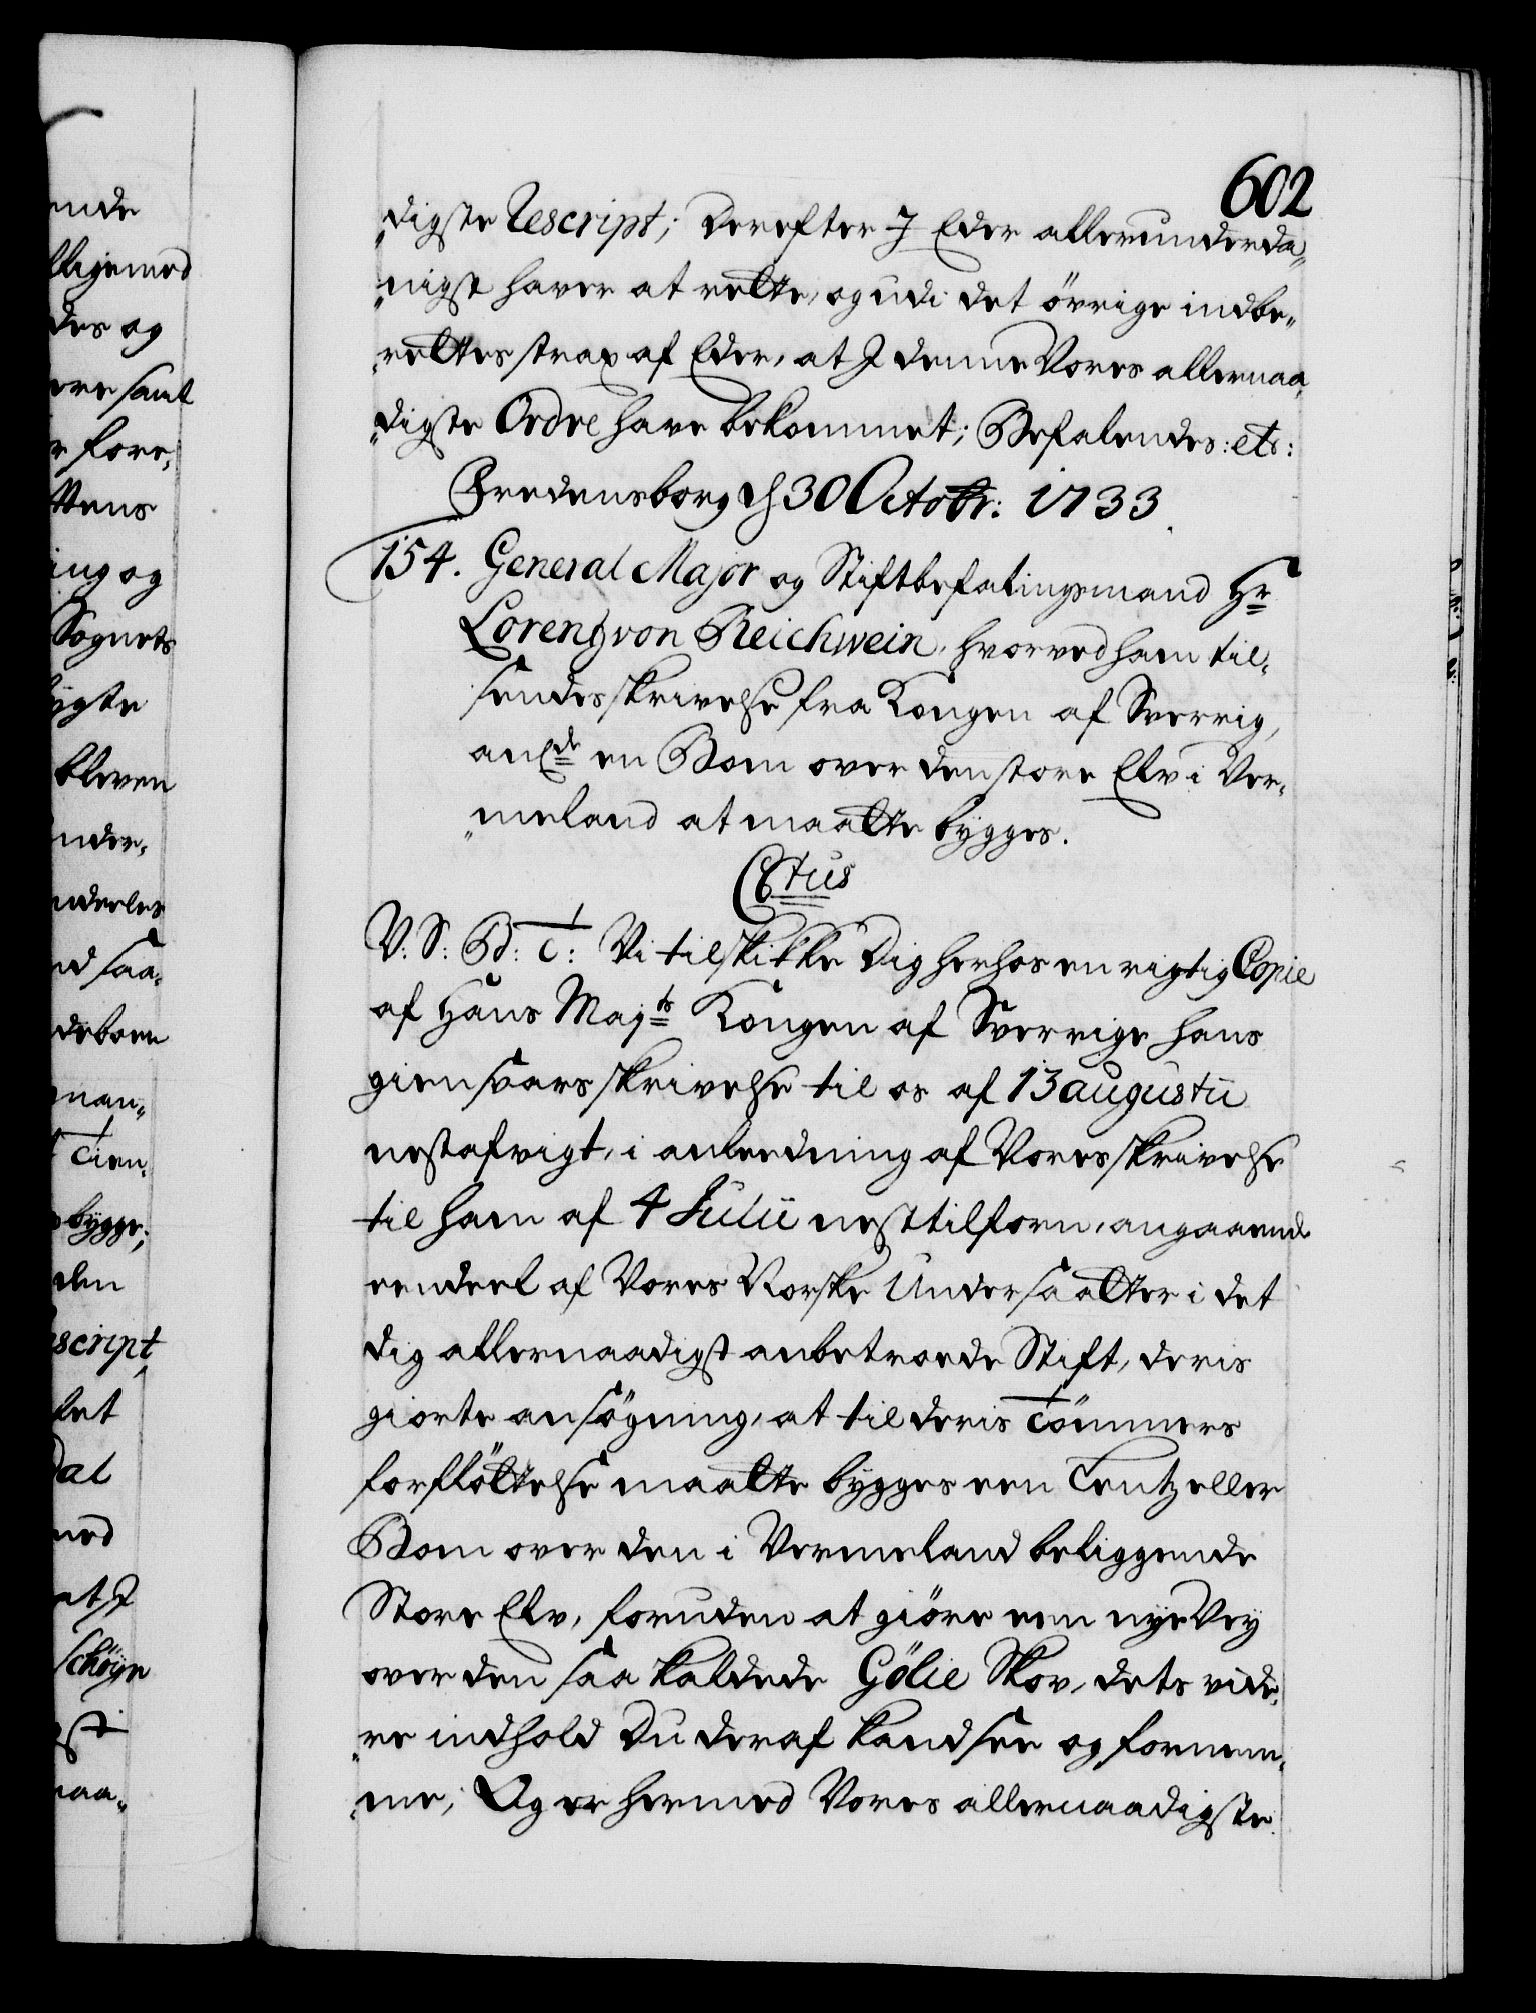 602
digste Rescript; derefter I Eder allerunderda„
„nigst haver at rette, og udi det övrige indbe„
„rettes strax af Eder, at I denne Vores allernaa„
„digste Ordre have bekommet; Befalendes: etc:
Fredensborg d 30 Octobr: 1733.
154. General Major og Stiftbefalingsmand Hr
Lorentz von Reichwein, hvorved ham til„
sendes skrivelse fra Kongen af Sverrig,
anl de en Bom over den store Elv i Ver„
„meland at maatte bygges.
C 6tus
V: S: G d: T: Vi tilskikke dig herhos en rigtig Copie
af Hans Majts Kongen af Sverrige hans
giensvars skrivelse til os af 13 augustii
nestafvigt, i anledning af Vores skrivelse
til ham af 4 Julii nest tilforn, angaaende
eendeel af Vores Norske Undersaatter i det
dig allernaadigst anbetroede Stift, deris
giorte ansögning, at til deris Tömmers
forflöttelse maatte bygges een Lentz eller
Bom over den i Vermeland beliggende
Store Elv, foruden at giöre een nye Vey
over den saa kaldede Gölie Skov, dets vide„
„re indhold Du deraf kand see og fornem„
„me; Og er hermed Vores allernaadigste
ende
lligemed
des og
ere samt
r fore„
ttens
ing og
Sognets
ygte
bleven
nder„
nderles
d saa„
deboen
man„
Tien„
bygge;
den
escript
let
dal
med
at I
Schöyn
gst
naa„